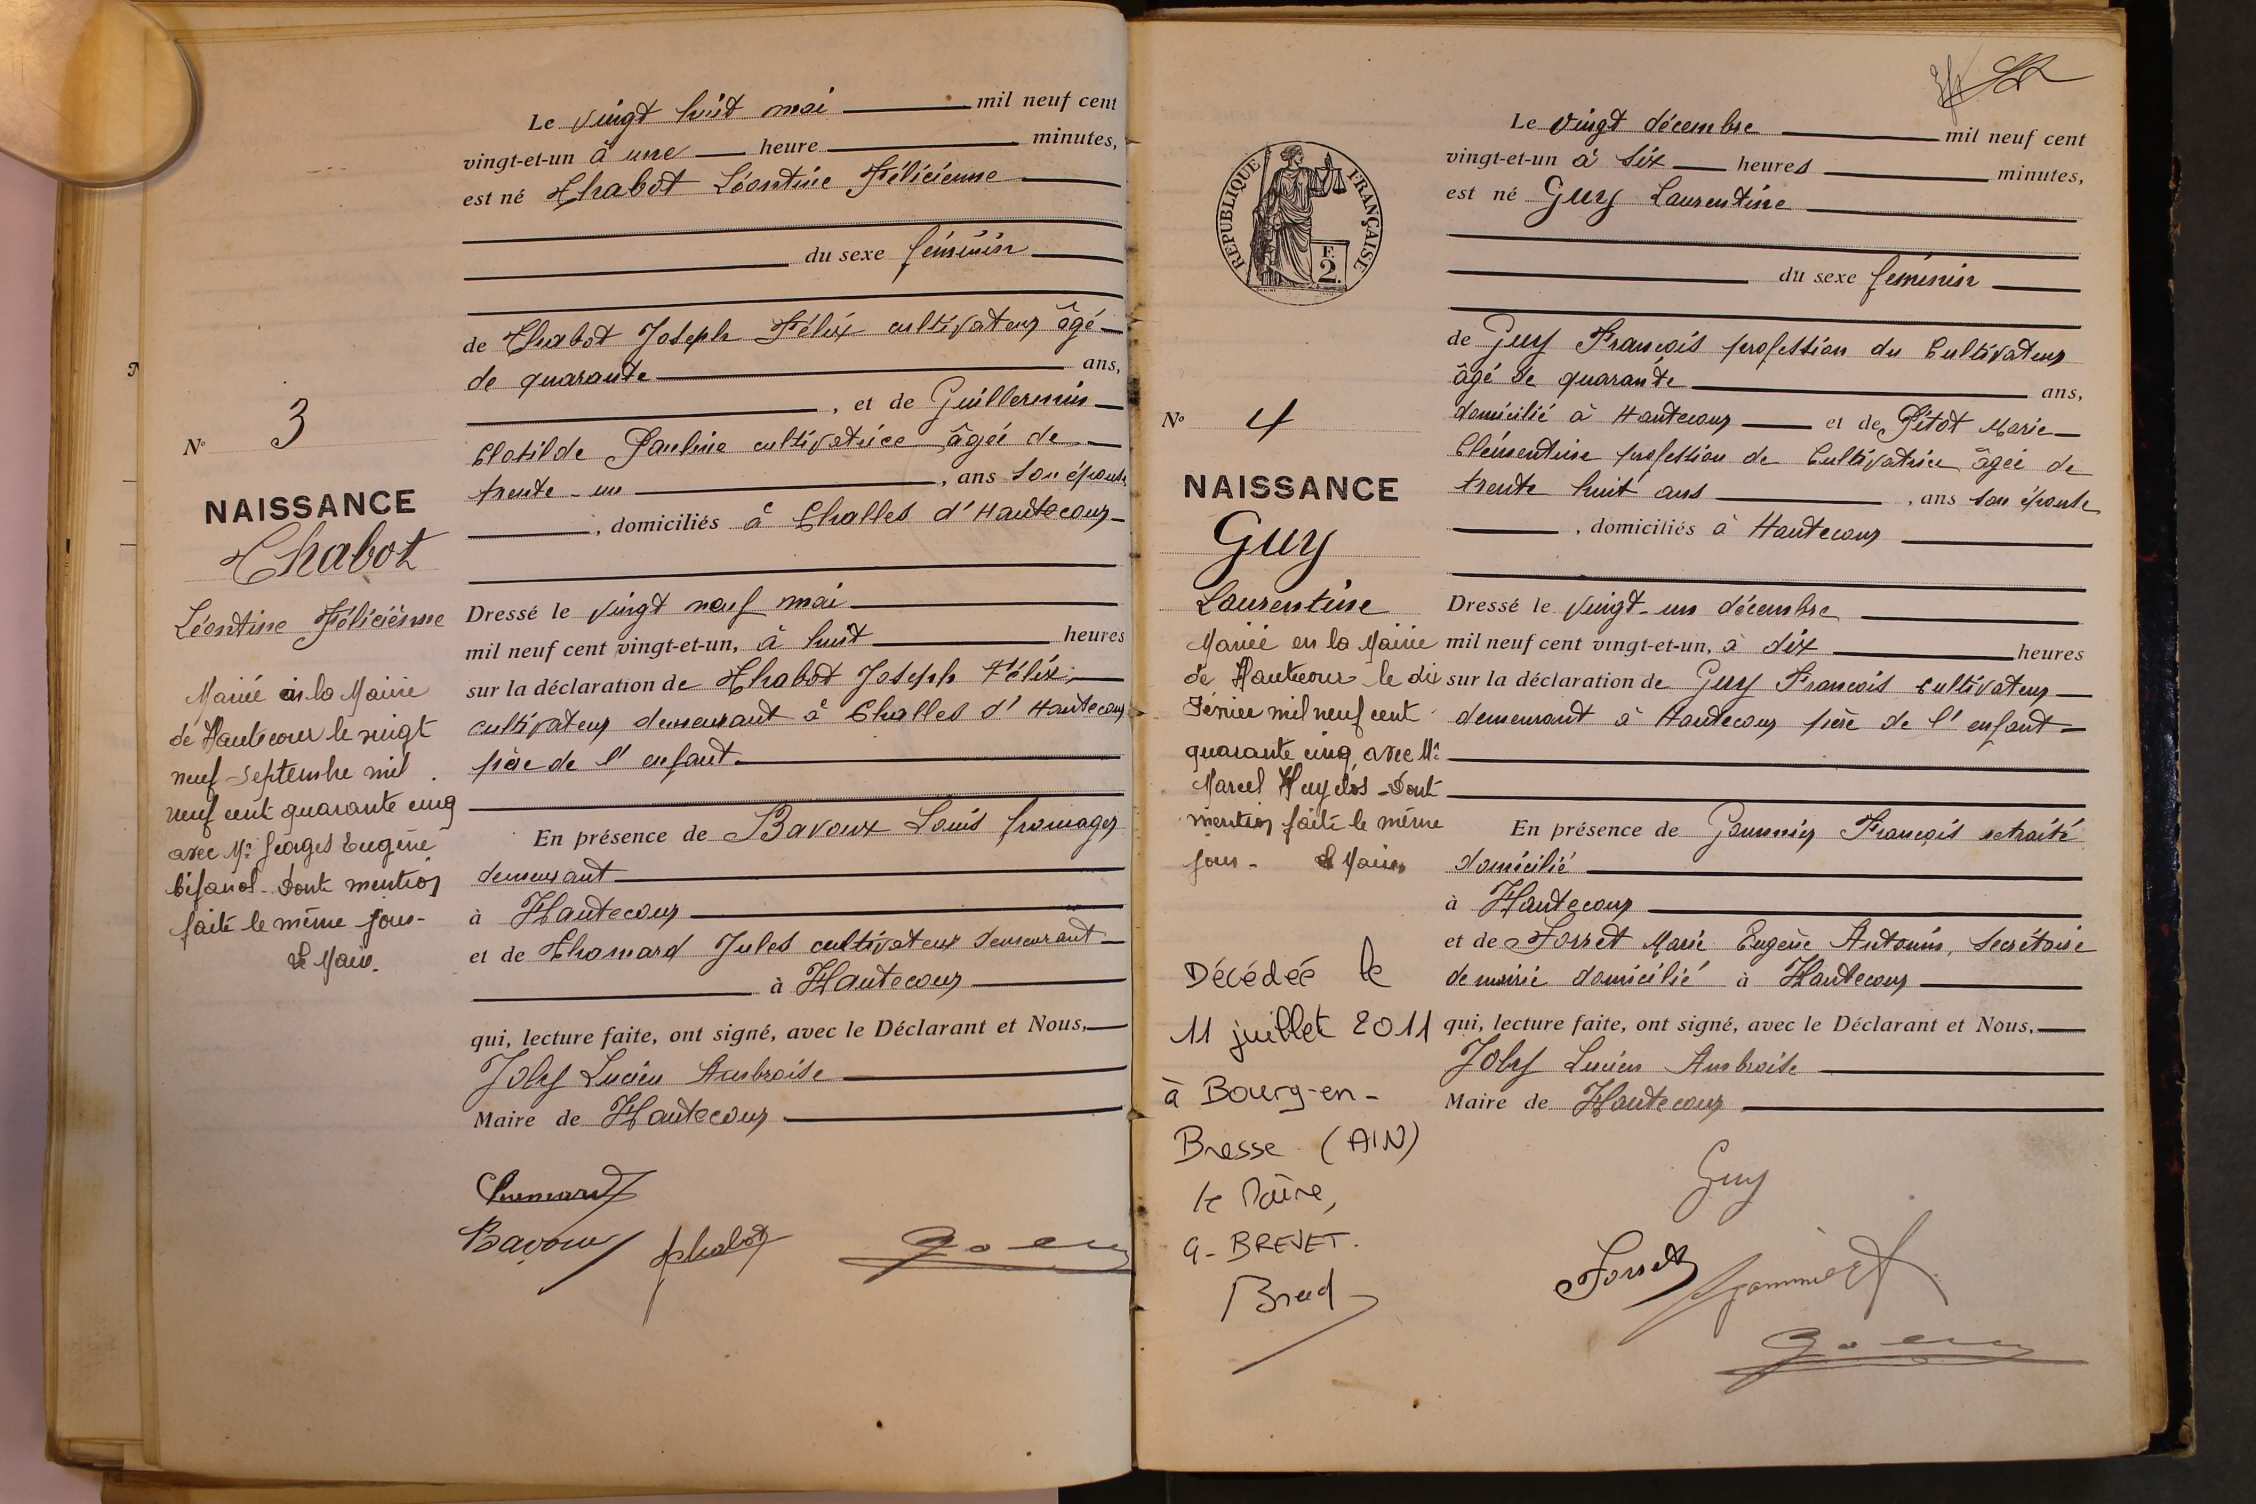 N° 3
NAISSANCE
Chabot
Léontine Félicienne
Mariée en la Mairie
de Hautecour le vingt
neuf septembre mil
neuf cent quarante cinq
avec Mr Georges Eugène
Dont mention
faite le même jour-
Le Maire.
Le vingt huit mai mil neuf cent
vingt-et-un à une heure minutes,
est né Chabot Léontine Félicienne
du sexe féminin
de Chabot Joseph Félix cultivateur âgé
de quarante ans,
, et de Guillermin
Clotilde Pauline cultivatrice âgée de
trente-un , ans son épouse
, domiciliés à Challes d'Hautecour
Dressé le vingt neuf mai
mil neuf cent vingt-et-un, à huit heures
sur la déclaration de Chabot Joseph Félix,
cultivateur demeurant à Challes d'Hautecour
père de l'enfant.
En présence de Bavoux Louis fromager
demeurant
à Hautecour
et de Chamard Jules cultivateur demeurant
à Hautecour
qui, lecture faite, ont signé, avec le Déclarant et Nous,
Joly Lucien Ambroise
Maire de Hautecour
Chamard
Bavoux Chabot
N° 4
RÉPUBLIQUE FRANÇAISE
F.
2.
NAISSANCE
Guy
Laurentine
Mariée en la Mairie
de Hautecour le dix
Février mil neuf cent
quarante cinq, avec Mr
Marcel Dont
mention faite le même
jour- Le Maire
Décédée le
11 juillet 2011
à Bourg-en-
Bresse (AIN)
le Maire,
G. BREVET.
Le vingt décembre mil neuf cent
vingt-et-un à six heures minutes,
est né Guy Laurentine
du sexe féminin
de Guy François profession du Cultivateur
âgé de quarante ans,
domicilié à Hautecour et de Pitot Marie
Clémentine profession de Cultivatrice âgée de
trente huit ans , ans son épouse
, domiciliés à Hautecour
Dressé le vingt-un décembre
mil neuf cent vingt-et-un, à dix heures
sur la déclaration de Guy François cultivateur
demeurant à Hautecour père de l'enfant
En présence de François retraité
domicilié
à Hautecour
et de Forret Marie Eugène Antonin, Secrétaire
de mairie domicilié à Hautecour
qui, lecture faite, ont signé, avec le Déclarant et Nous,
Joly Lucien Ambroise
Maire de Hautecour
Guy
Forret